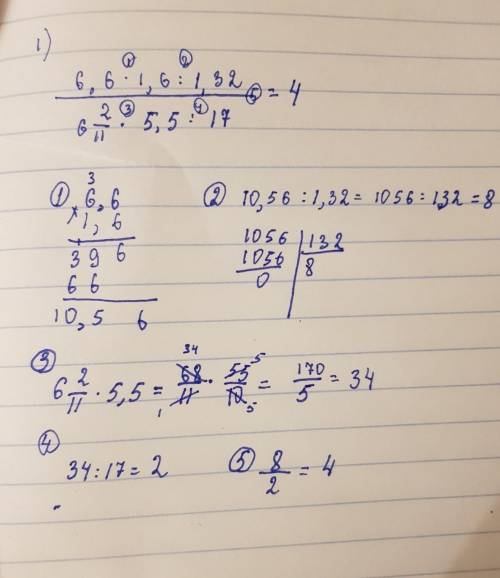 1)
① ②
6,6 · 1,6 : 1,32
③ ④ ⑤ = 4
6 2/11 · 5,5 : 17
① 3
6,6
× 1,6
396
66
10,56
② 10,56 : 1,32 = 1056 : 132 = 8
1056 | 132
1056 | 8
0
③ 6 2/11 · 5,5 = 68/11 · 55/10 = 170/5 = 34
34 5
1 5
④
34 : 17 = 2
⑤ 8/2 = 4